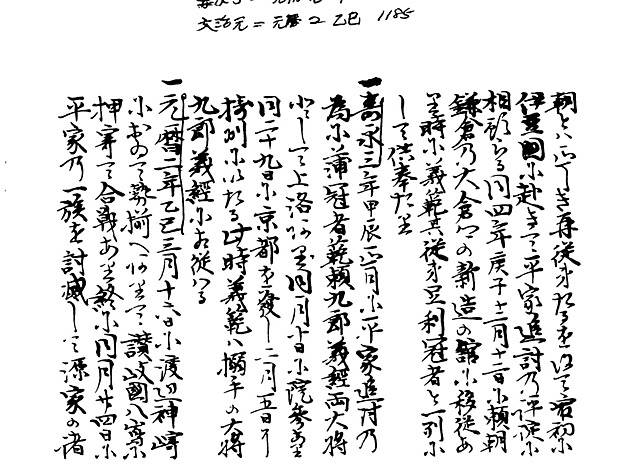 文治元=元暦2 乙巳 1185
朝とハ正しき再従弟たるを以て最初に
伊豆國に赴きて平家追討乃評議に
相預る同四年庚子十二月十二日に頼朝
鎌倉乃大倉の新造の舘に移徙あ
里時に義範其従弟足利冠者と一列に
して供奉た里
一壽永三年甲辰正月に平家追討乃
為に蒲冠者範頼九郎義經両大将
として上洛同月十日に院参あ里
同二十九日に京都を發し二月五日
摂州にいたる此時義範ハ搦手の大将
九郎義經に相従へる
一元暦二年乙巳三月十六日に渡辺神崎
において勢揃へ讃岐國八嶋に
押寄て合戦あ里終に同月廿四日に
平家乃一族を討滅して源家の諸